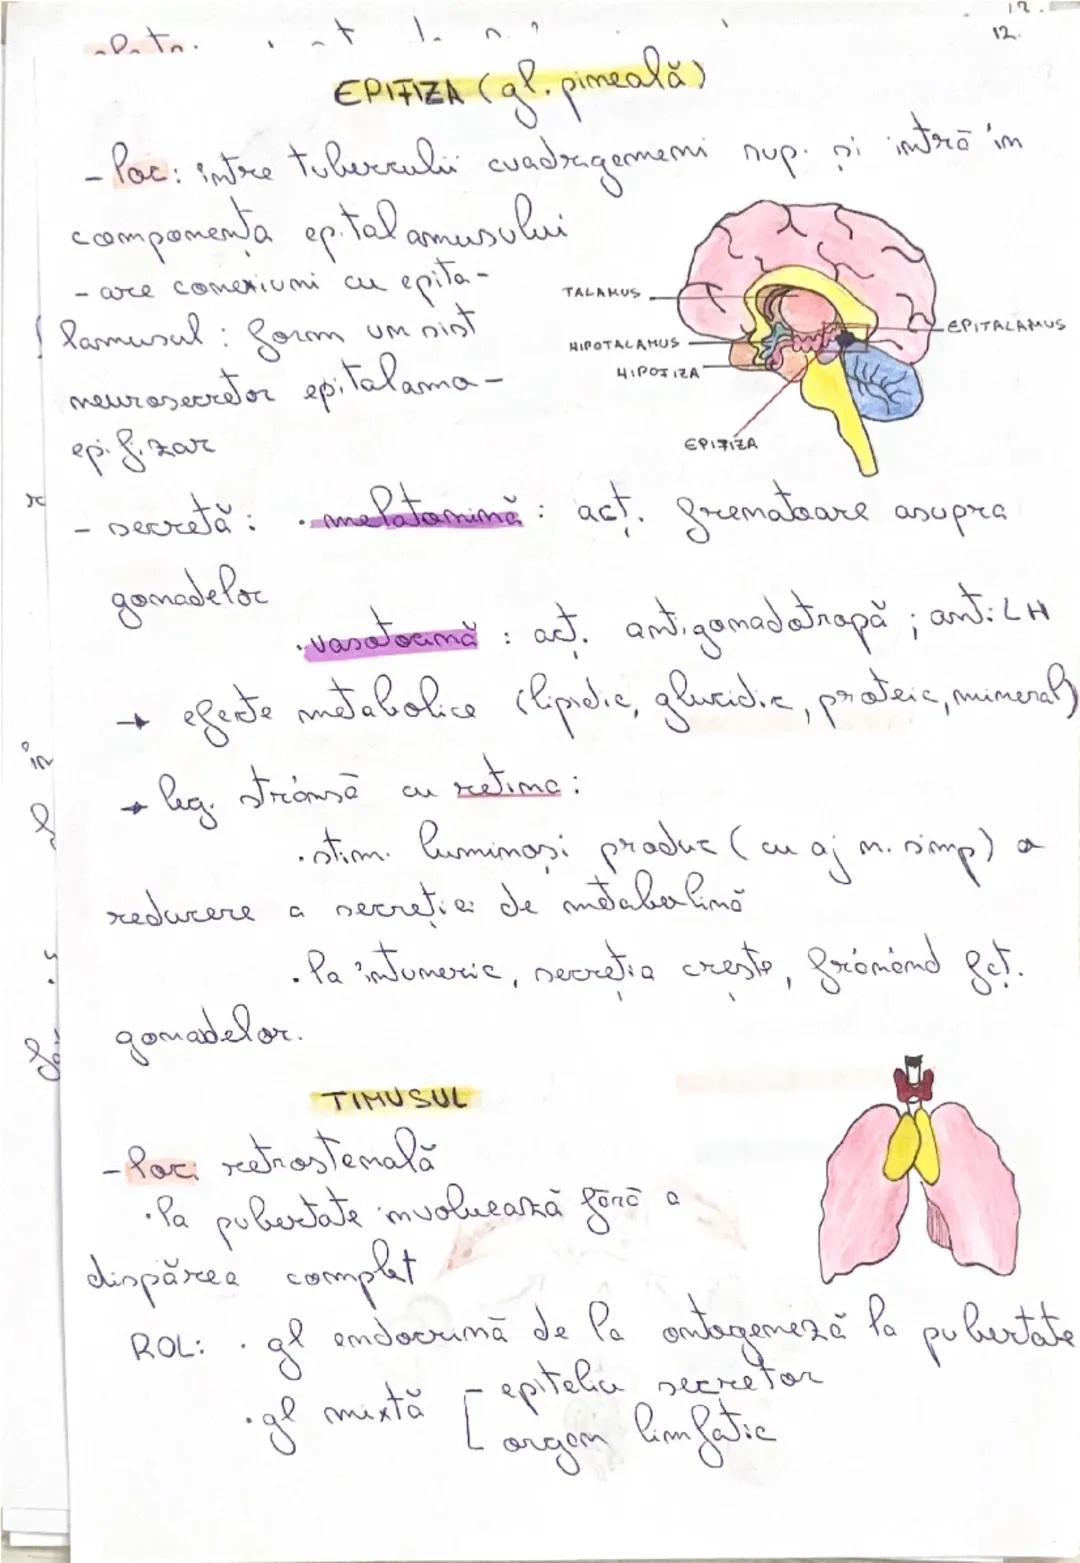 12.
EPIFIZA (gl. pineală)
- loc: între tuberculii cuadrigemeni sup. și intră în
componența epitalamusului
- are conexiuni cu epita-
lamusul: form un sist
neurosecretor epitalamo-
epifizar
TALAMUS
HIPOTALAMUS
HIPOFIZA
EPITALAMUS
EPIFIZA
- secretă: · melatonină: acț. frenatoare asupra
gonadelor
· vasotocină: acț. antigonadotropă; anti LH
→ efecte metabolice (lipidic, glucidic, proteic, mineral)
→ leg. strânsă cu retina:
· stim. luminoși produc (cu aj n. simp) o
reducere a secreției de metabolină
· la întuneric, secreția crește, frânând fct.
gonadelor.
TIMUSUL
- loc: retrostenală
· la pubertate involuează fără a
dispărea complet
ROL: · gl endocrină de la ontogeneză la pubertate
· gl mixtă [ - epiteliu secretor
organ limfatic